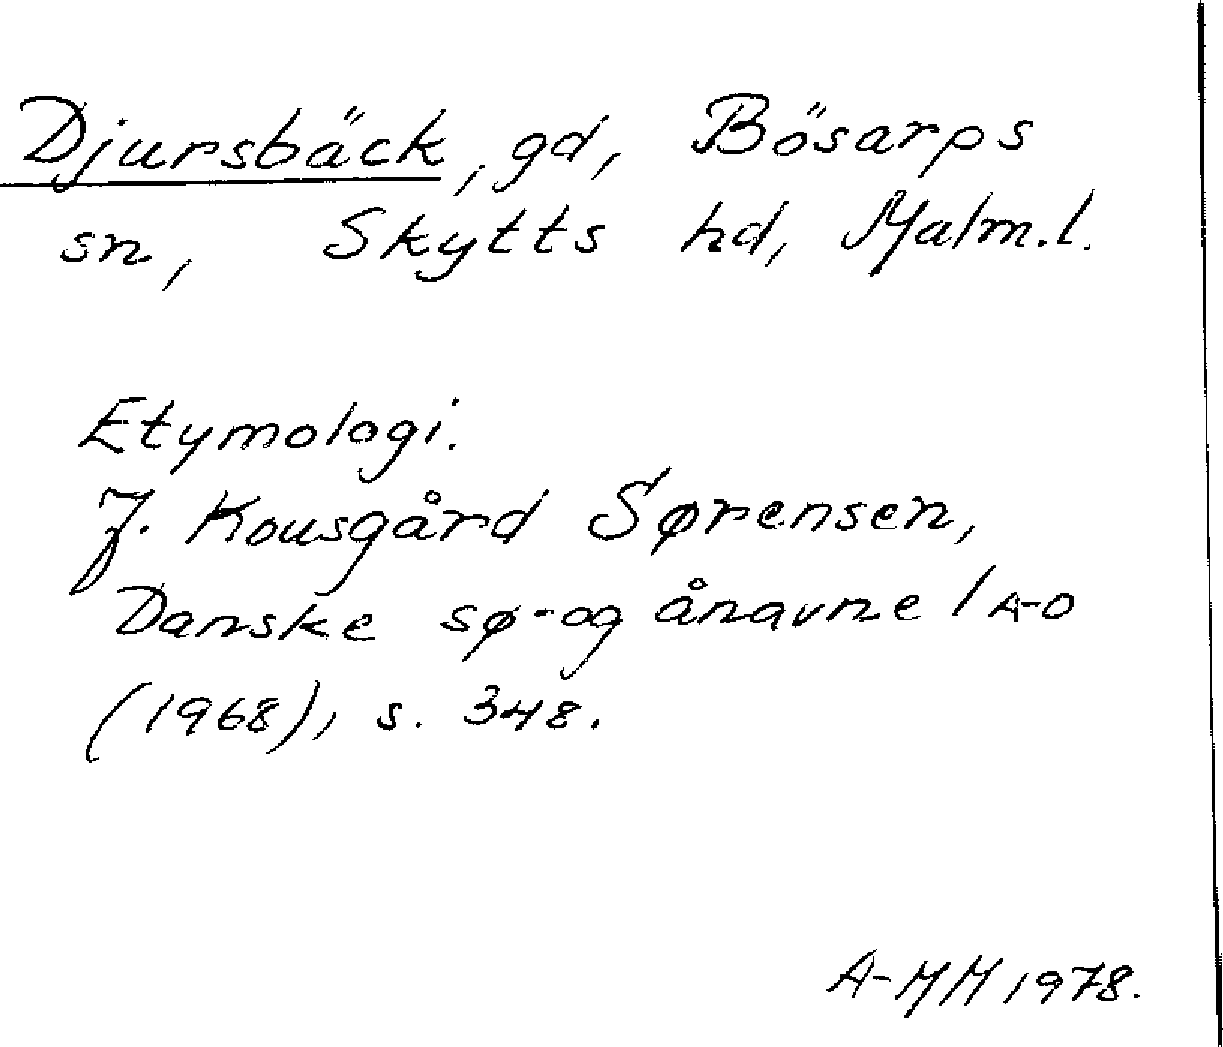 Djursbäck, gd, Bösarps
sn, Skytts hd, Malm.l.
Etymologi.
J. Kousgård Sørensen,
Danske sø- og ånavne 1 A-O
(1968), s. 348.
A-MM 1978.